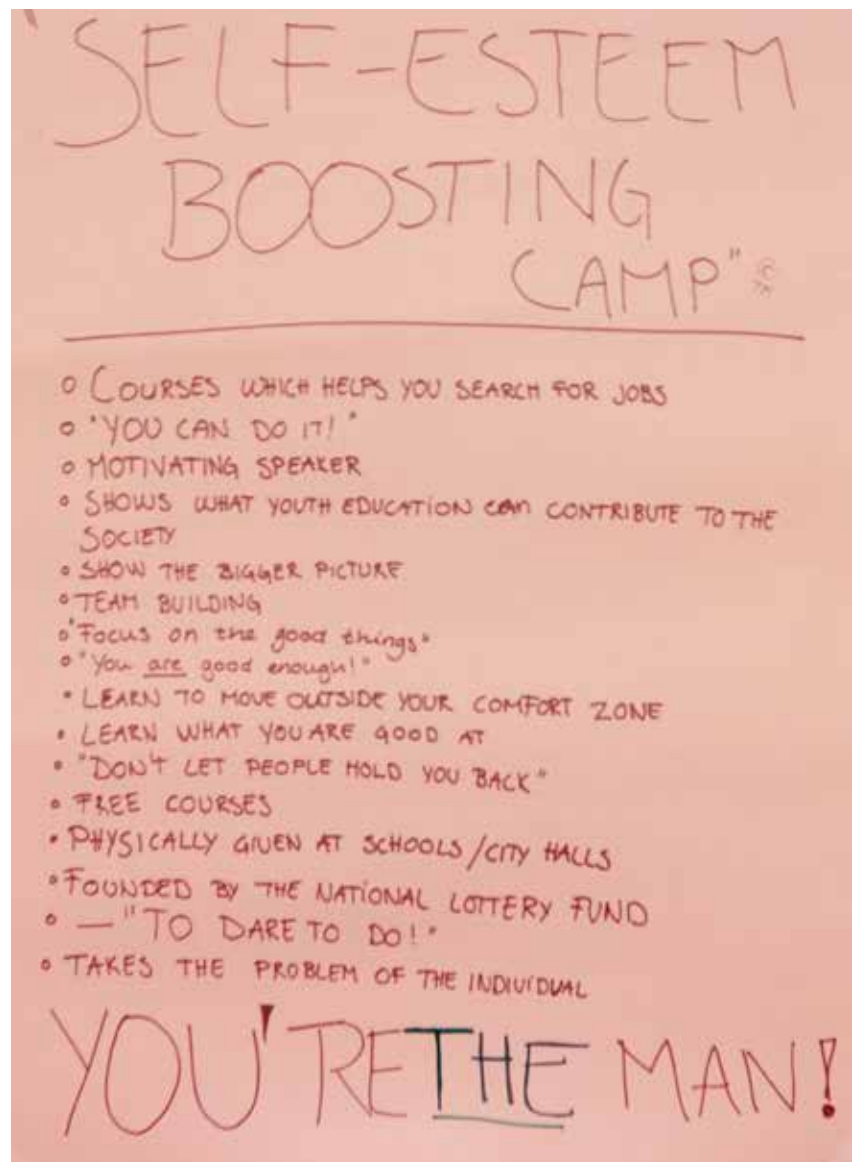 "SELF-ESTEEM
BOOSTING
CAMP" ©
TM
o COURSES WHICH HELPS YOU SEARCH FOR JOBS
o "YOU CAN DO IT!"
o MOTIVATING SPEAKER
o SHOWS WHAT YOUTH EDUCATION can CONTRIBUTE TO THE
SOCIETY
o SHOW THE BIGGER PICTURE
o TEAM BUILDING
o "Focus on the good things"
o "You are good enough!"
• LEARN TO MOVE OUTSIDE YOUR COMFORT ZONE
• LEARN WHAT YOU ARE GOOD AT
• "DON'T LET PEOPLE HOLD YOU BACK"
• FREE COURSES
• PHYSICALLY GIVEN AT SCHOOLS/CITY HALLS
• FOUNDED BY THE NATIONAL LOTTERY FUND
• — "TO DARE TO DO!"
• TAKES THE PROBLEM OF THE INDIVIDUAL
YOU'RE THE MAN!